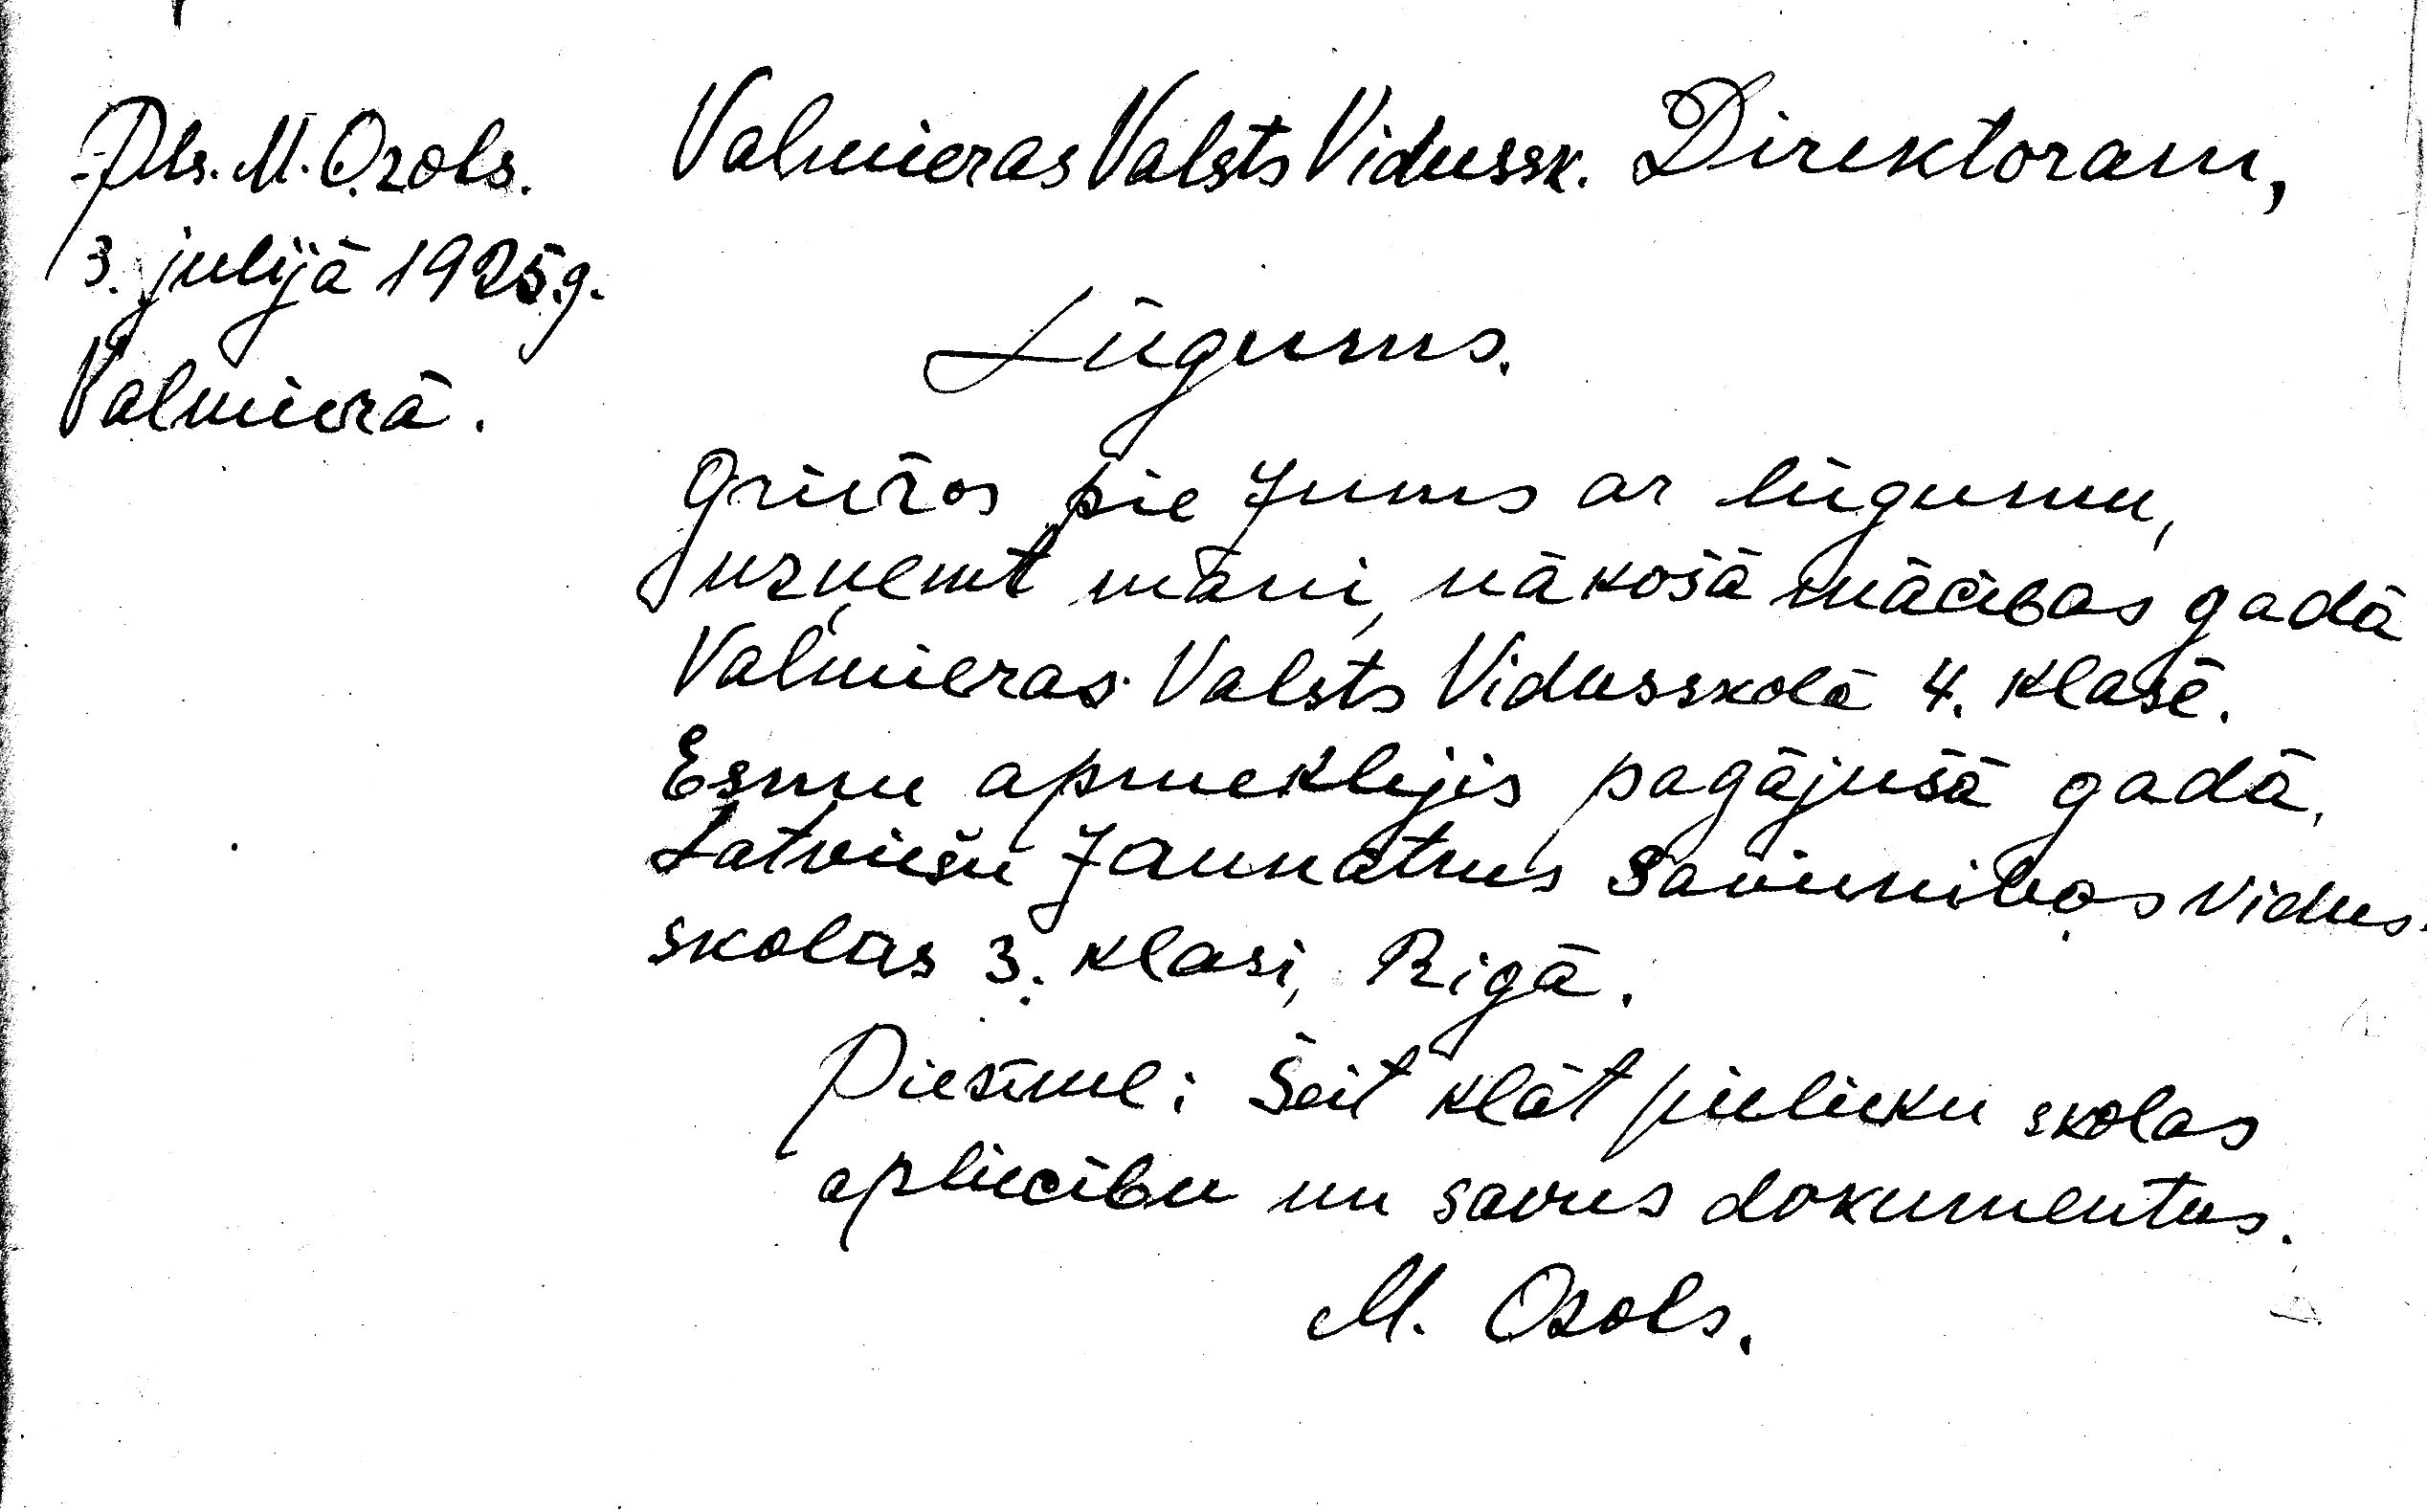 Pls. M. Ozols.
3. julijā 1925.g.
Valmierā.
Valmieras Valsts Vidussk. Direktoram,
Lūgums.
Griežos pie Jums ar lūgumu,
uzņemt mani, nākošā mācibas gadā
Valmieras Valsts Vidusskolā 4. klasē.
Esmu apmeklejis pagājušā gadā,
Latviešu Jaunatnes Savienibas vidus-
skolas 3. klasi, Rigā.
Piezime: Šeit klāt pielieku skolas
apliecibu un savus dokumentus.
M. Ozols.